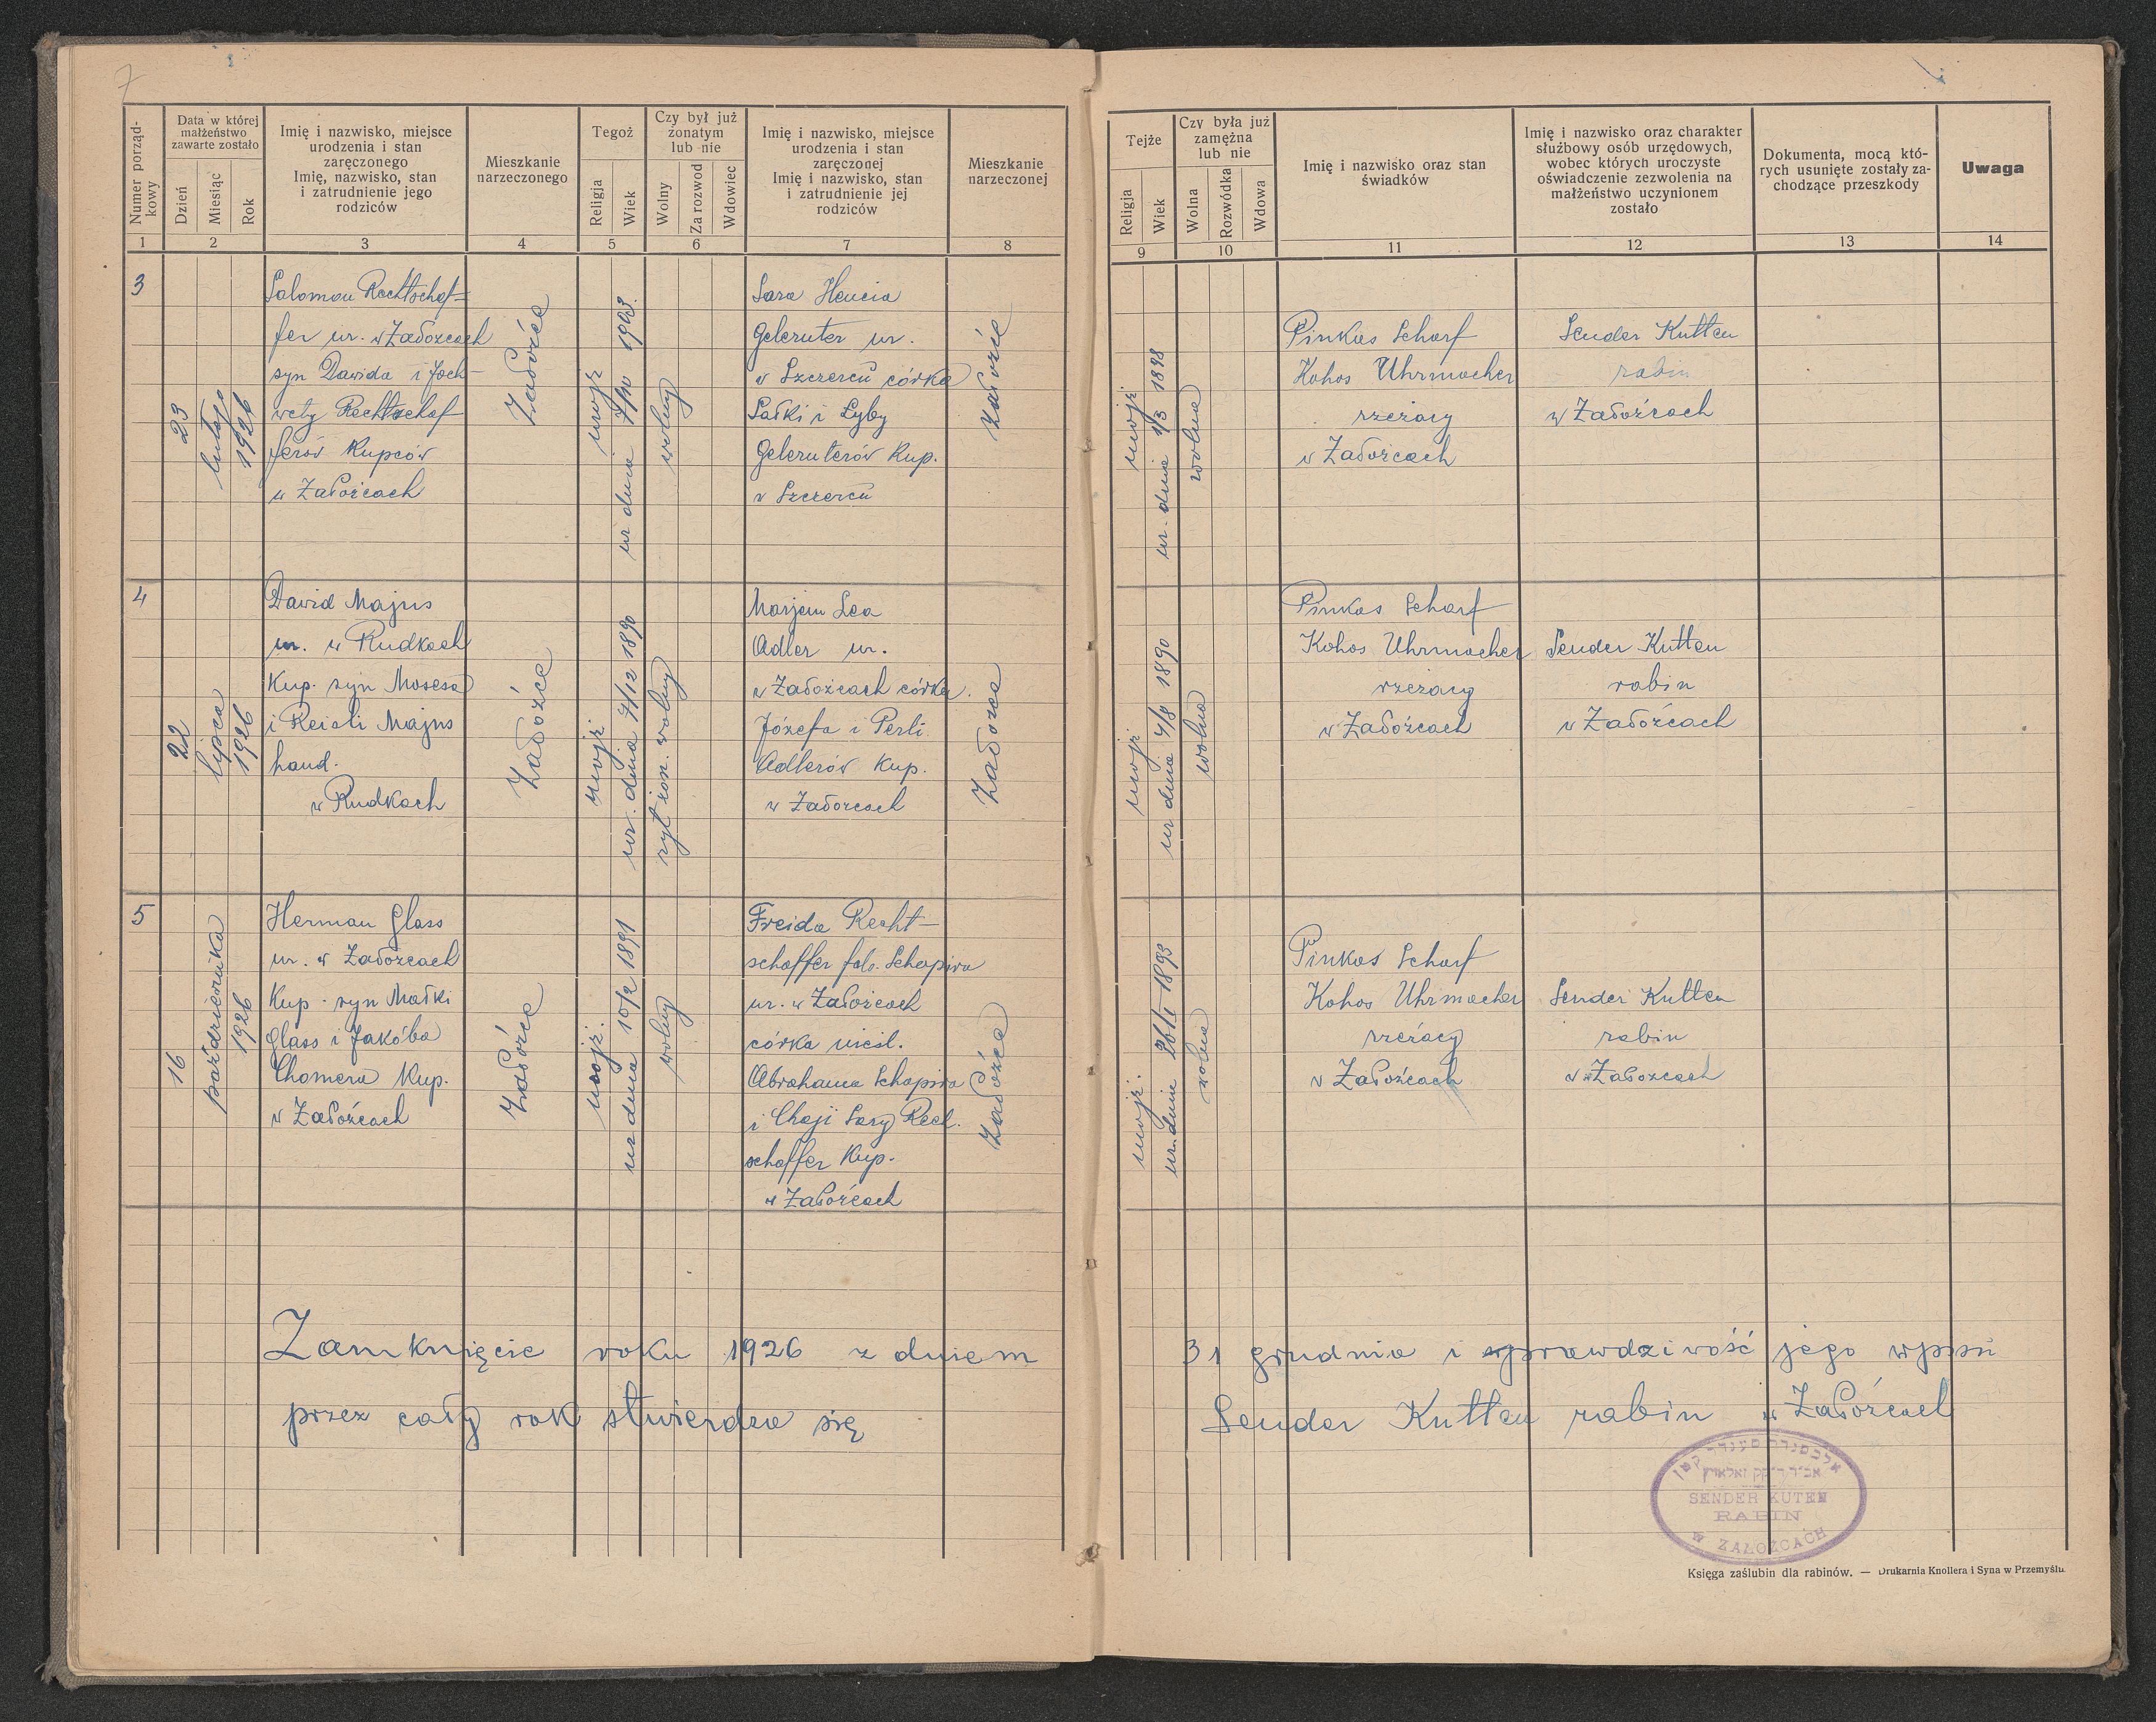 7
Numer porząd-
kowy
Data w której
małżeństwo
zawarte zostało
Dzień
Miesiąc
Rok
Imię i nazwisko, miejsce
urodzenia i stan
zaręczonego
Imię, nazwisko, stan
i zatrudnienie jego
rodziców
Mieszkanie
narzeczonego
Tegoż
Religja
Wiek
Czy był już
żonatym
lub nie
Wolny
Za rozwod
Wdowiec
Imię i nazwisko, miejsce
urodzenia i stan
zaręczonej
Imię i nazwisko, stan
i zatrudnienie jej
rodziców
Mieszkanie
narzeczonej
1
2
3
4
5
6
7
8
3
23
lutego
1926
Salomon Rechtschaf=
fer ur. w Załozcach
syn Dawida i Joch-
wety Rechtschaf
ferów Kupców
w Załoźcach
Załoźce
mojż
ur dnia 7/10
wolny
Sara Hencia
Geleruter ur.
w Szczercu córka
Salki i Lyby
Geleruterów Kup.
w Szczercu
Załoźce
4
22
lipca
1926
Dawid Majus
ur. w Rudkach
Kup. syn Mosesa
i Reisli Majus
hand.
w Rudkach
Załoźce
mojż
ur. dnia 7/12 1890
ryt żon. wolny
Marjem Lea
Adler ur.
w Załoźcach córka.
Józefa i Perli
Adlerów Kup.
w Załozcach
Załozce
5
16
października
1926
Herman Glass
ur. w Załozcach
Kup. syn Małki
Glass i Jakóba
Chomera Kup.
w Załoźcach
Załoźce
mojż.
ur dnia 10/2 1891
wolny
Freida Recht-
schaffer fals. Schapira
ur. w Załoźcach
córka nieśl.
Abrahama Schapira
i Chaji Sary Rech.
schaffer Kup.
w Załoźcach
Załoźce
Zamknięcie roku 1926 z dniem
przez cały rok stwierdza się
Tejże
Religja
Wiek
Czy była już
zamężna
lub nie
Wolna
Rozwódka
Wdowa
Imię i nazwisko oraz stan
świadków
Imię i nazwisko oraz charakter
służbowy osób urzędowych,
wobec których uroczyste
oświadczenie zezwolenia na
małżeństwo uczynionem
zostało
Dokumenta, mocą któ-
rych usunięte zostały za-
chodzące przeszkody
Uwaga
9
10
11
12
13
14
mojż
ur. dnia 1/3 1898
wolna
Pinkas Scharf
Kohos Uhrmacher
rzezacy
w Załoźcach
Sender Kutten
rabin
w Załoźcach
mojż
ur dnia 4/8 1890
wolna
Pinkas Scharf
Kohos Uhrmacher
rzezacy
w Załoźcach
Sender Kutten
rabin
w Załoźcach
mojż.
ur. dnia 1893
wolna
Pinkas Scharf
Kohos Uhrmacher
rzezacy
w Załoźcach
Sender Kutten
rabin
w Załozcach
31 grudnia i sprawdziwość jego wpisu
Sender Kutten rabin w Załoźcach
SENDER KUTEN
RABIN
W ZAŁOZCACH
Księga zaślubin dla rabinów. — Drukarnia Knollera i Syna w Przemyślu.